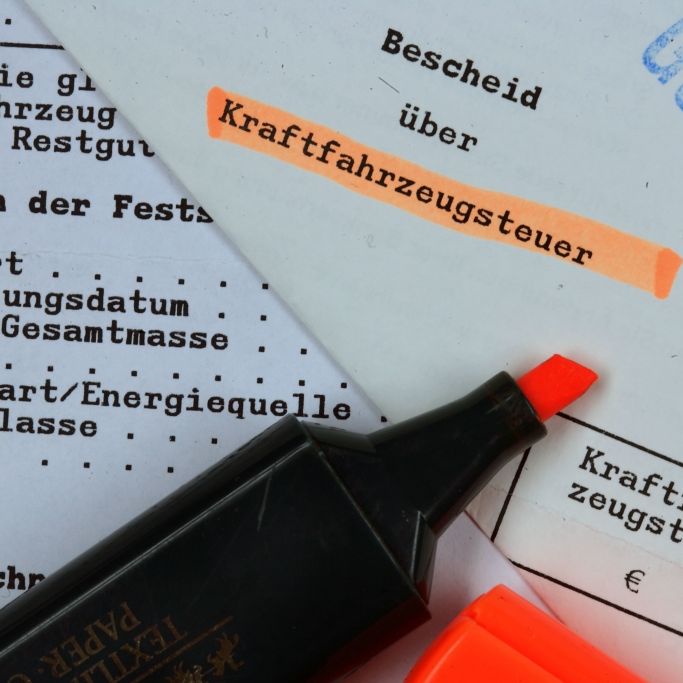 Bescheid
über
Kraftfahrzeugsteuer
ie gl
hrzeug
Restgut
der Fests
t . . . . . .
ungsdatum . .
Gesamtmasse . .
. . . . . . . . .
art/Energiequelle .
lasse . . .
. . . .
chr
Kraft
zeugst
€
TEXTIL
PAPER